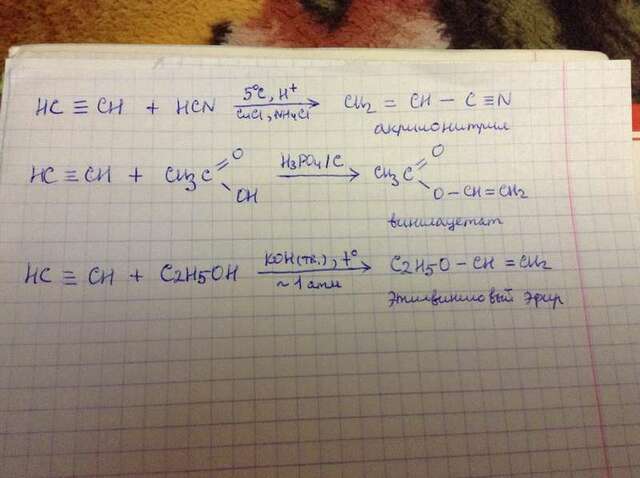 HC ≡ CH + HCN 5°C, H⁺ / CuCl, NH₄Cl → CH₂ = CH − C ≡ N
акрилонитрил
HC ≡ CH + CH₃C(=O)OH H₃PO₄/C → CH₃C(=O)O − CH = CH₂
винилацетат
HC ≡ CH + C₂H₅OH KOH(тв.), t° / ~ 1 атм → C₂H₅O − CH = CH₂
этилвиниловый эфир